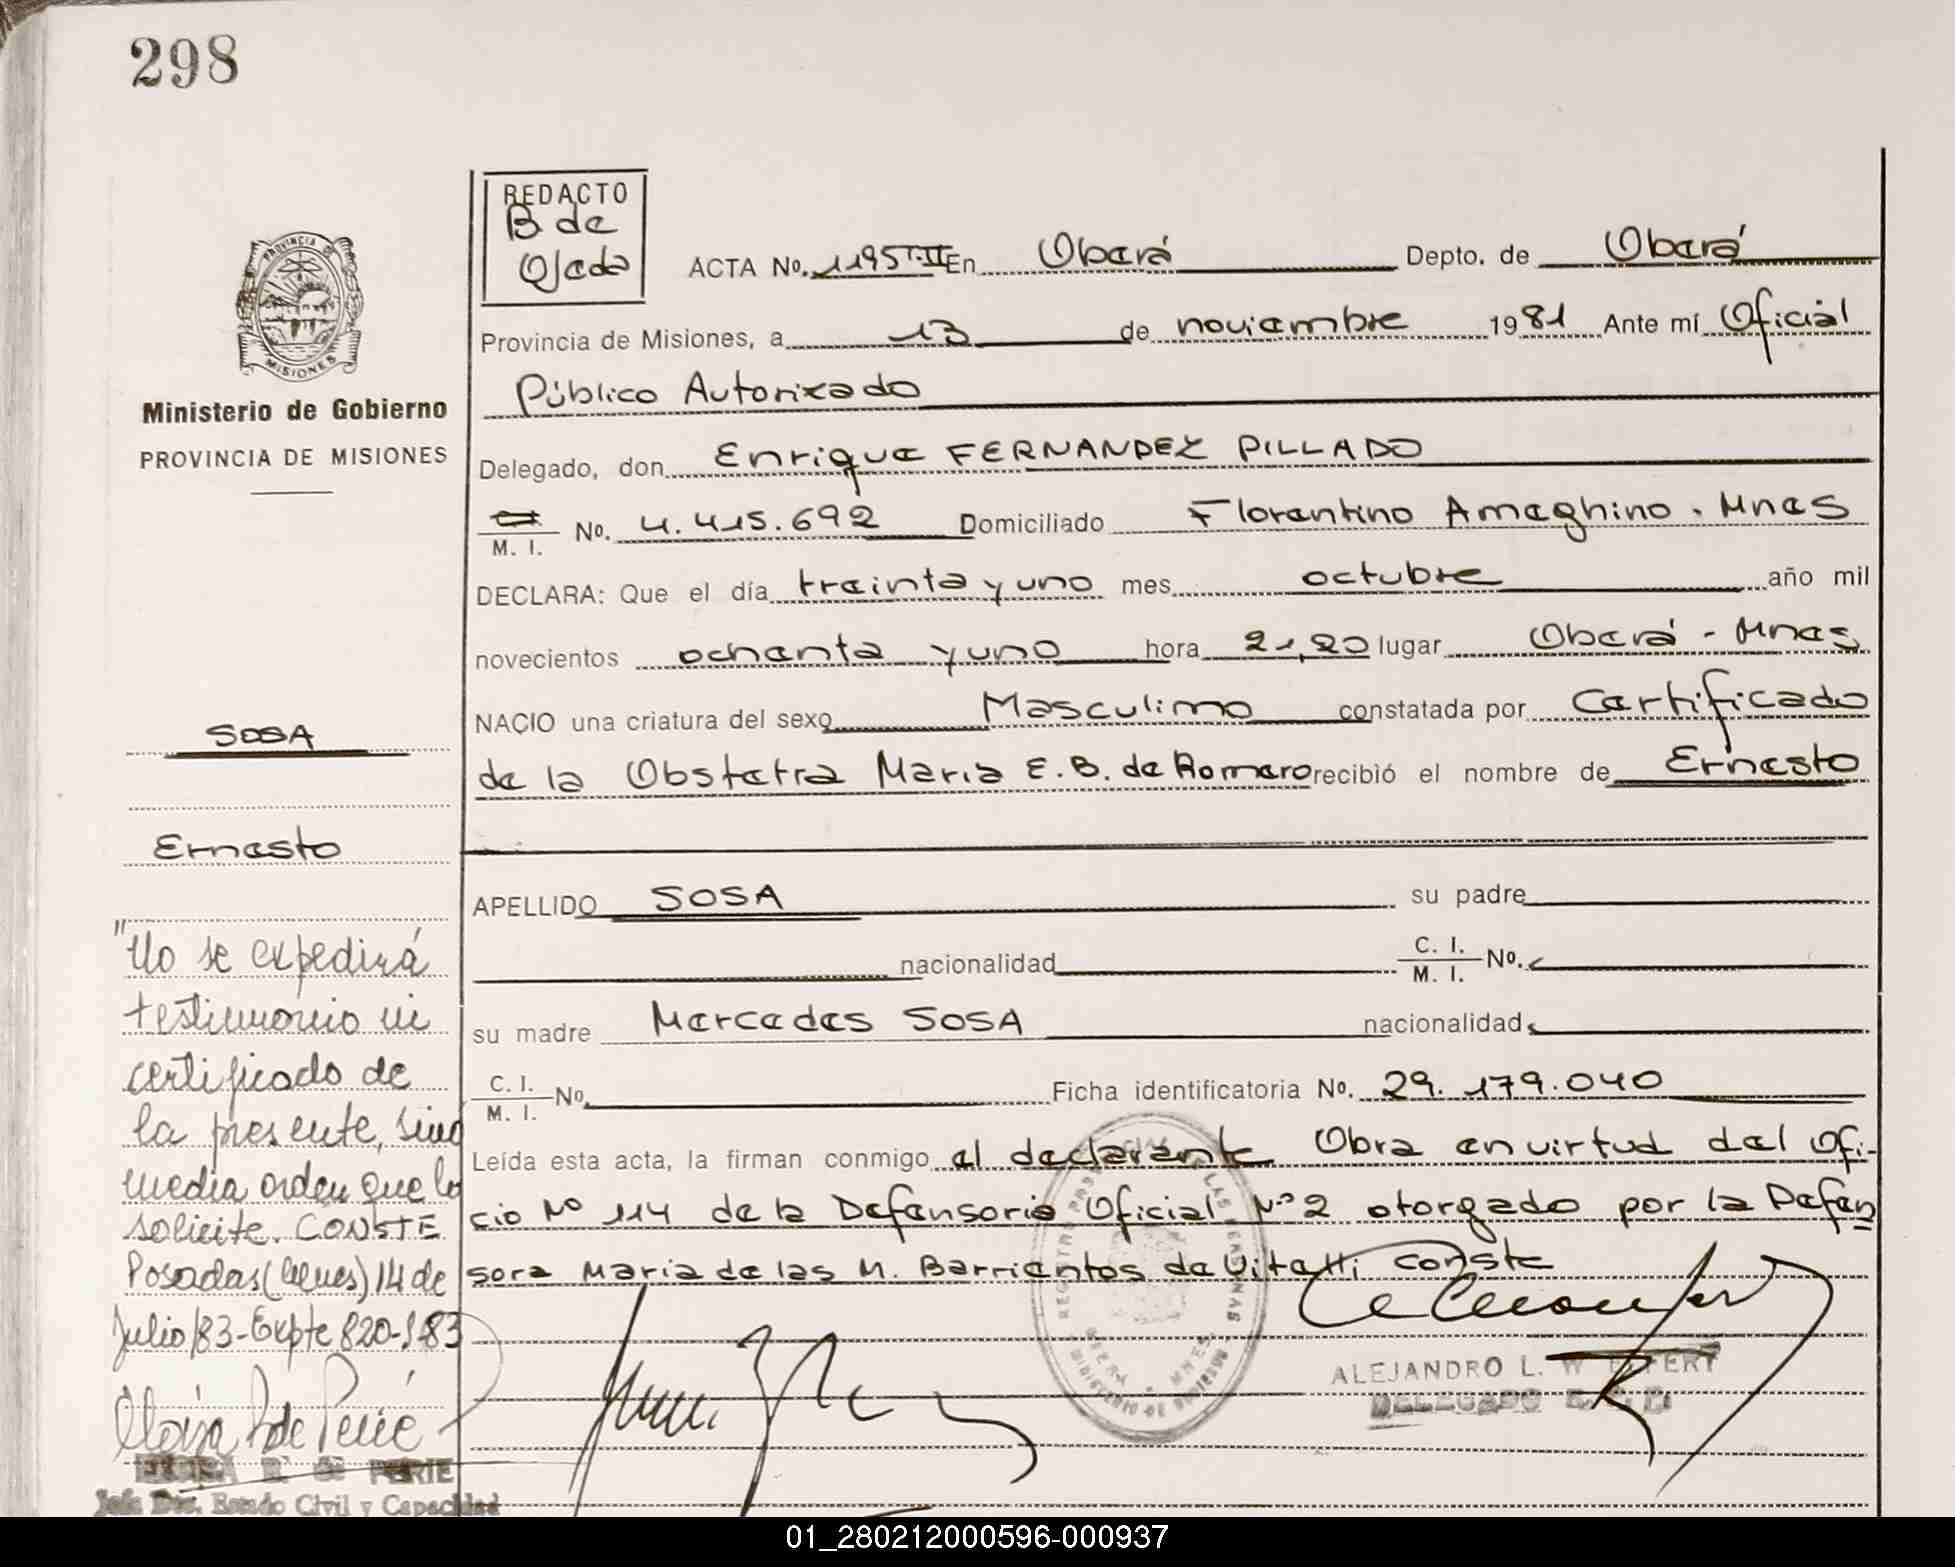 298
REDACTO
B de
Ojeda
ACTA No. 1195 T-II En Oberá Depto. de Oberá
PROVINCIA DE
MISIONES
Provincia de Misiones, a 13 de noviembre 1981 Ante mí Oficial
Público Autorizado
Ministerio de Gobierno
PROVINCIA DE MISIONES
Delegado, don Enrique FERNANDEZ PILLADO
M. I. No. 4.415.692 Domiciliado Florentino Ameghino. Mnes
DECLARA: Que el día treinta y uno mes octubre año mil
novecientos ochenta y uno hora 21,20 lugar Oberá - Mnes
NACIO una criatura del sexo Masculino constatada por Certificado
de la Obstetra Maria E. B. de Romero recibió el nombre de Ernesto
SOSA
Ernesto
APELLIDO SOSA su padre
nacionalidad C. I. M. I. No.
su madre Mercedes SOSA nacionalidad
C. I. M. I. No. Ficha identificatoria No. 29.179.040
Leída esta acta, la firman conmigo el declarante Obra en virtud del Ofi-
cio Nº 114 de la Defensoria Oficial Nº 2 otorgado por la Defen
sora Maria de las M. Barrientos de Vitelli conste
"No se expedirá
testimonio ni
certificado de
la presente, sino
media orden que lo
solicite. CONSTE
Posadas (Mnes) 14 de
Julio/83 - Expte 820-S-83
REGISTRO PROVINCIAL DE LAS PERSONAS
OBERA - MNES
MINISTERIO DE GOBIERNO
ALEJANDRO L.
DELEGADO
DE PERIE
Jefa Dto. Estado Civil y Capacidad
01_280212000596-000937